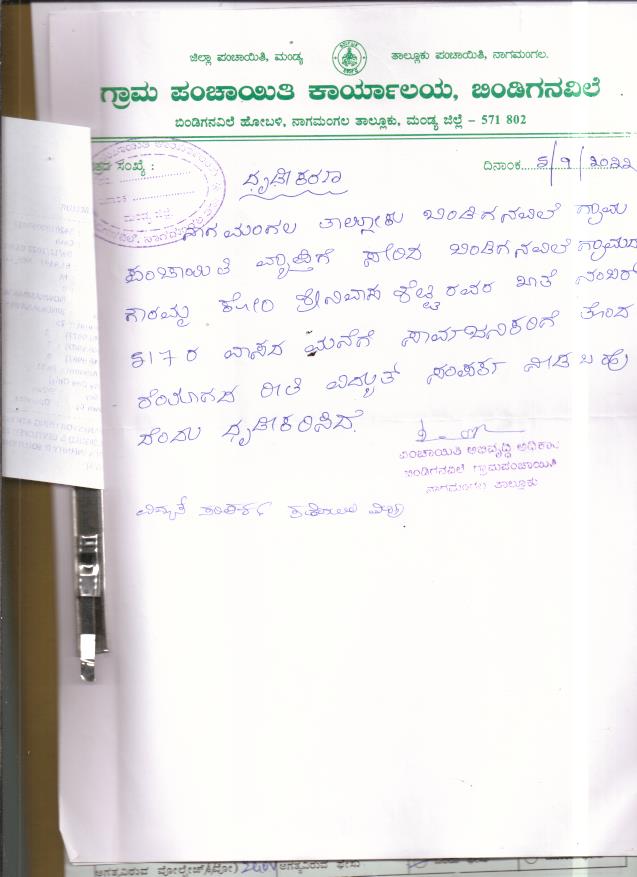 ಜಿಲ್ಲಾ ಪಂಚಾಯಿತಿ, ಮಂಡ್ಯ ತಾಲ್ಲೂಕು ಪಂಚಾಯಿತಿ, ನಾಗಮಂಗಲ.
ಗ್ರಾಮ ಪಂಚಾಯಿತಿ ಕಾರ್ಯಾಲಯ, ಬಿಂಡಿಗನವಿಲೆ
ಬಿಂಡಿಗನವಿಲೆ ಹೋಬಳಿ, ನಾಗಮಂಗಲ ತಾಲ್ಲೂಕು, ಮಂಡ್ಯ ಜಿಲ್ಲೆ – 571 802
ಸಂಖ್ಯೆ : ದಿನಾಂಕ
ಧೃಡೀಕರಣ
ನಾಗಮಂಗಲ ತಾಲ್ಲೋಕು ಬಿಂಡಿಗನವಿಲೆ ಗ್ರಾಮ
ಪಂಚಾಯಿತಿ ವ್ಯಾಪ್ತಿಗೆ ಸೇರಿದ ಬಿಂಡಿಗನವಿಲೆ ಗ್ರಾಮದ
ಗೌರಮ್ಮ ಕೋಂ ಶ್ರೀನಿವಾಸ ಶೆಟ್ಟಿ ರವರ ಖಾತೆ ನಂಬರ್
517 ರ ವಾಸದ ಮನೆಗೆ ಸಾರ್ವಜನಿಕರಿಗೆ ತೊಂದ
ರೆಯಾಗದ ರೀತಿ ವಿದ್ಯುತ್ ಸಂಪರ್ಕ ನೀಡಬಹು
ದೆಂದು ಧೃಡೀಕರಿಸಿದೆ.
ಪಂಚಾಯಿತಿ ಅಭಿವೃದ್ಧಿ ಅಧಿಕಾರಿ
ಬಿಂಡಿಗನವಿಲೆ ಗ್ರಾಮಪಂಚಾಯಿತಿ
ನಾಗಮಂಗಲ ತಾಲ್ಲೂಕು
ಸಂಪರ್ಕ